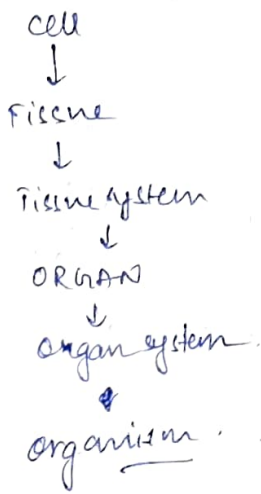 cell
↓
Fissue
↓
Tissue system
↓
ORGAN
↓
organ system.
organism.